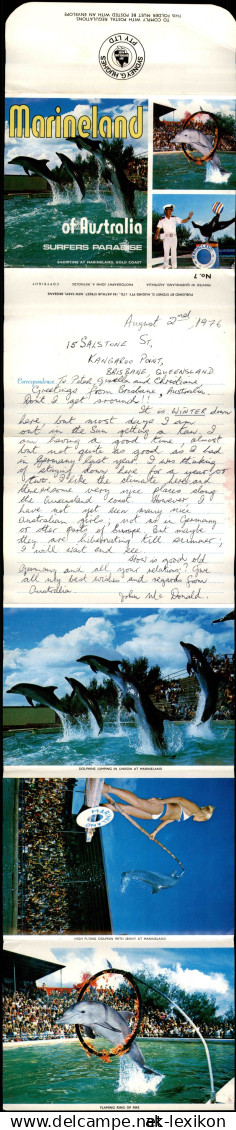 TO COMPLY WITH POSTAL REGULATIONS
THIS FOLDER MUST BE POSTED WITH AN ENVELOPE
SYDNEY G. HUGHES
PTY LTD
Marineland
of Australia
SURFERS PARADISE
SPORTING AT MARINELAND, GOLD COAST
No. 7
COPYRIGHT
August 2nd, 1976
15 SALSTONE ST,
KANGAROO POINT,
BRISBANE, QUEENSLAND
Correspondence To Peter, Gisella and Christiane,
Greetings from Brisbane, Australia,
Don't I get around!!
It is WINTER down
here, but most days I am
out in the Sun getting a tan. I
am having a good time, almost
but not quite as good as I had
in Germany last year. I was thinking
of staying down here for a year or
two. I like the climate here and
there are some very nice places along
the Queensland coast. However I
have not yet seen many nice
Australian girls, not as in Germany
or other parts of Europe. But maybe
they are hibernating till summer,
I will wait and see.
How is good old
Germany and all your relatives? Give
all my best wishes and regards from
Australia.
John Mc Donald.
DOLPHINS JUMPING IN UNISON AT MARINELAND
HIGH FLYING DOLPHIN WITH JENNY AT MARINELAND
FLAMING RING OF FIRE
www.ak-lexikon